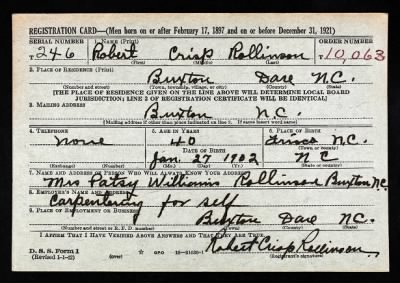 REGISTRATION CARD—(Men born on or after February 17, 1897 and on or before December 31, 1921)
SERIAL NUMBER 1. NAME (Print) ORDER NUMBER
T 246 Robert Crisp Rollinson T 10,063
(First) (Middle) (Last)
2. PLACE OF RESIDENCE (Print)
Buxton Dare N.C.
(Number and street) (Town, township, village, or city) (County) (State)
[THE PLACE OF RESIDENCE GIVEN ON THE LINE ABOVE WILL DETERMINE LOCAL BOARD
JURISDICTION; LINE 2 OF REGISTRATION CERTIFICATE WILL BE IDENTICAL]
3. MAILING ADDRESS
Buxton N.C.
[Mailing address if other than place indicated on line 2. If same insert word same]
4. TELEPHONE 5. AGE IN YEARS 6. PLACE OF BIRTH
None 40 Frisco N.C.
DATE OF BIRTH (Town or county)
Jan. 27 1902 N C
(Exchange) (Number) (Mo.) (Day) (Yr.) (State or country)
7. NAME AND ADDRESS OF PERSON WHO WILL ALWAYS KNOW YOUR ADDRESS
Mrs Patsy Williams Rollinson Buxton N.C.
8. EMPLOYER'S NAME AND ADDRESS
Carpentering for self
9. PLACE OF EMPLOYMENT OR BUSINESS
Buxton Dare N.C.
(Number and street or R. F. D. number) (Town) (County) (State)
I AFFIRM THAT I HAVE VERIFIED ABOVE ANSWERS AND THAT THEY ARE TRUE.
D. S. S. Form 1
(Revised 1-1-42) (over) GPO 16—21630-1 Robert Crisp Rollinson
(Registrant's signature)